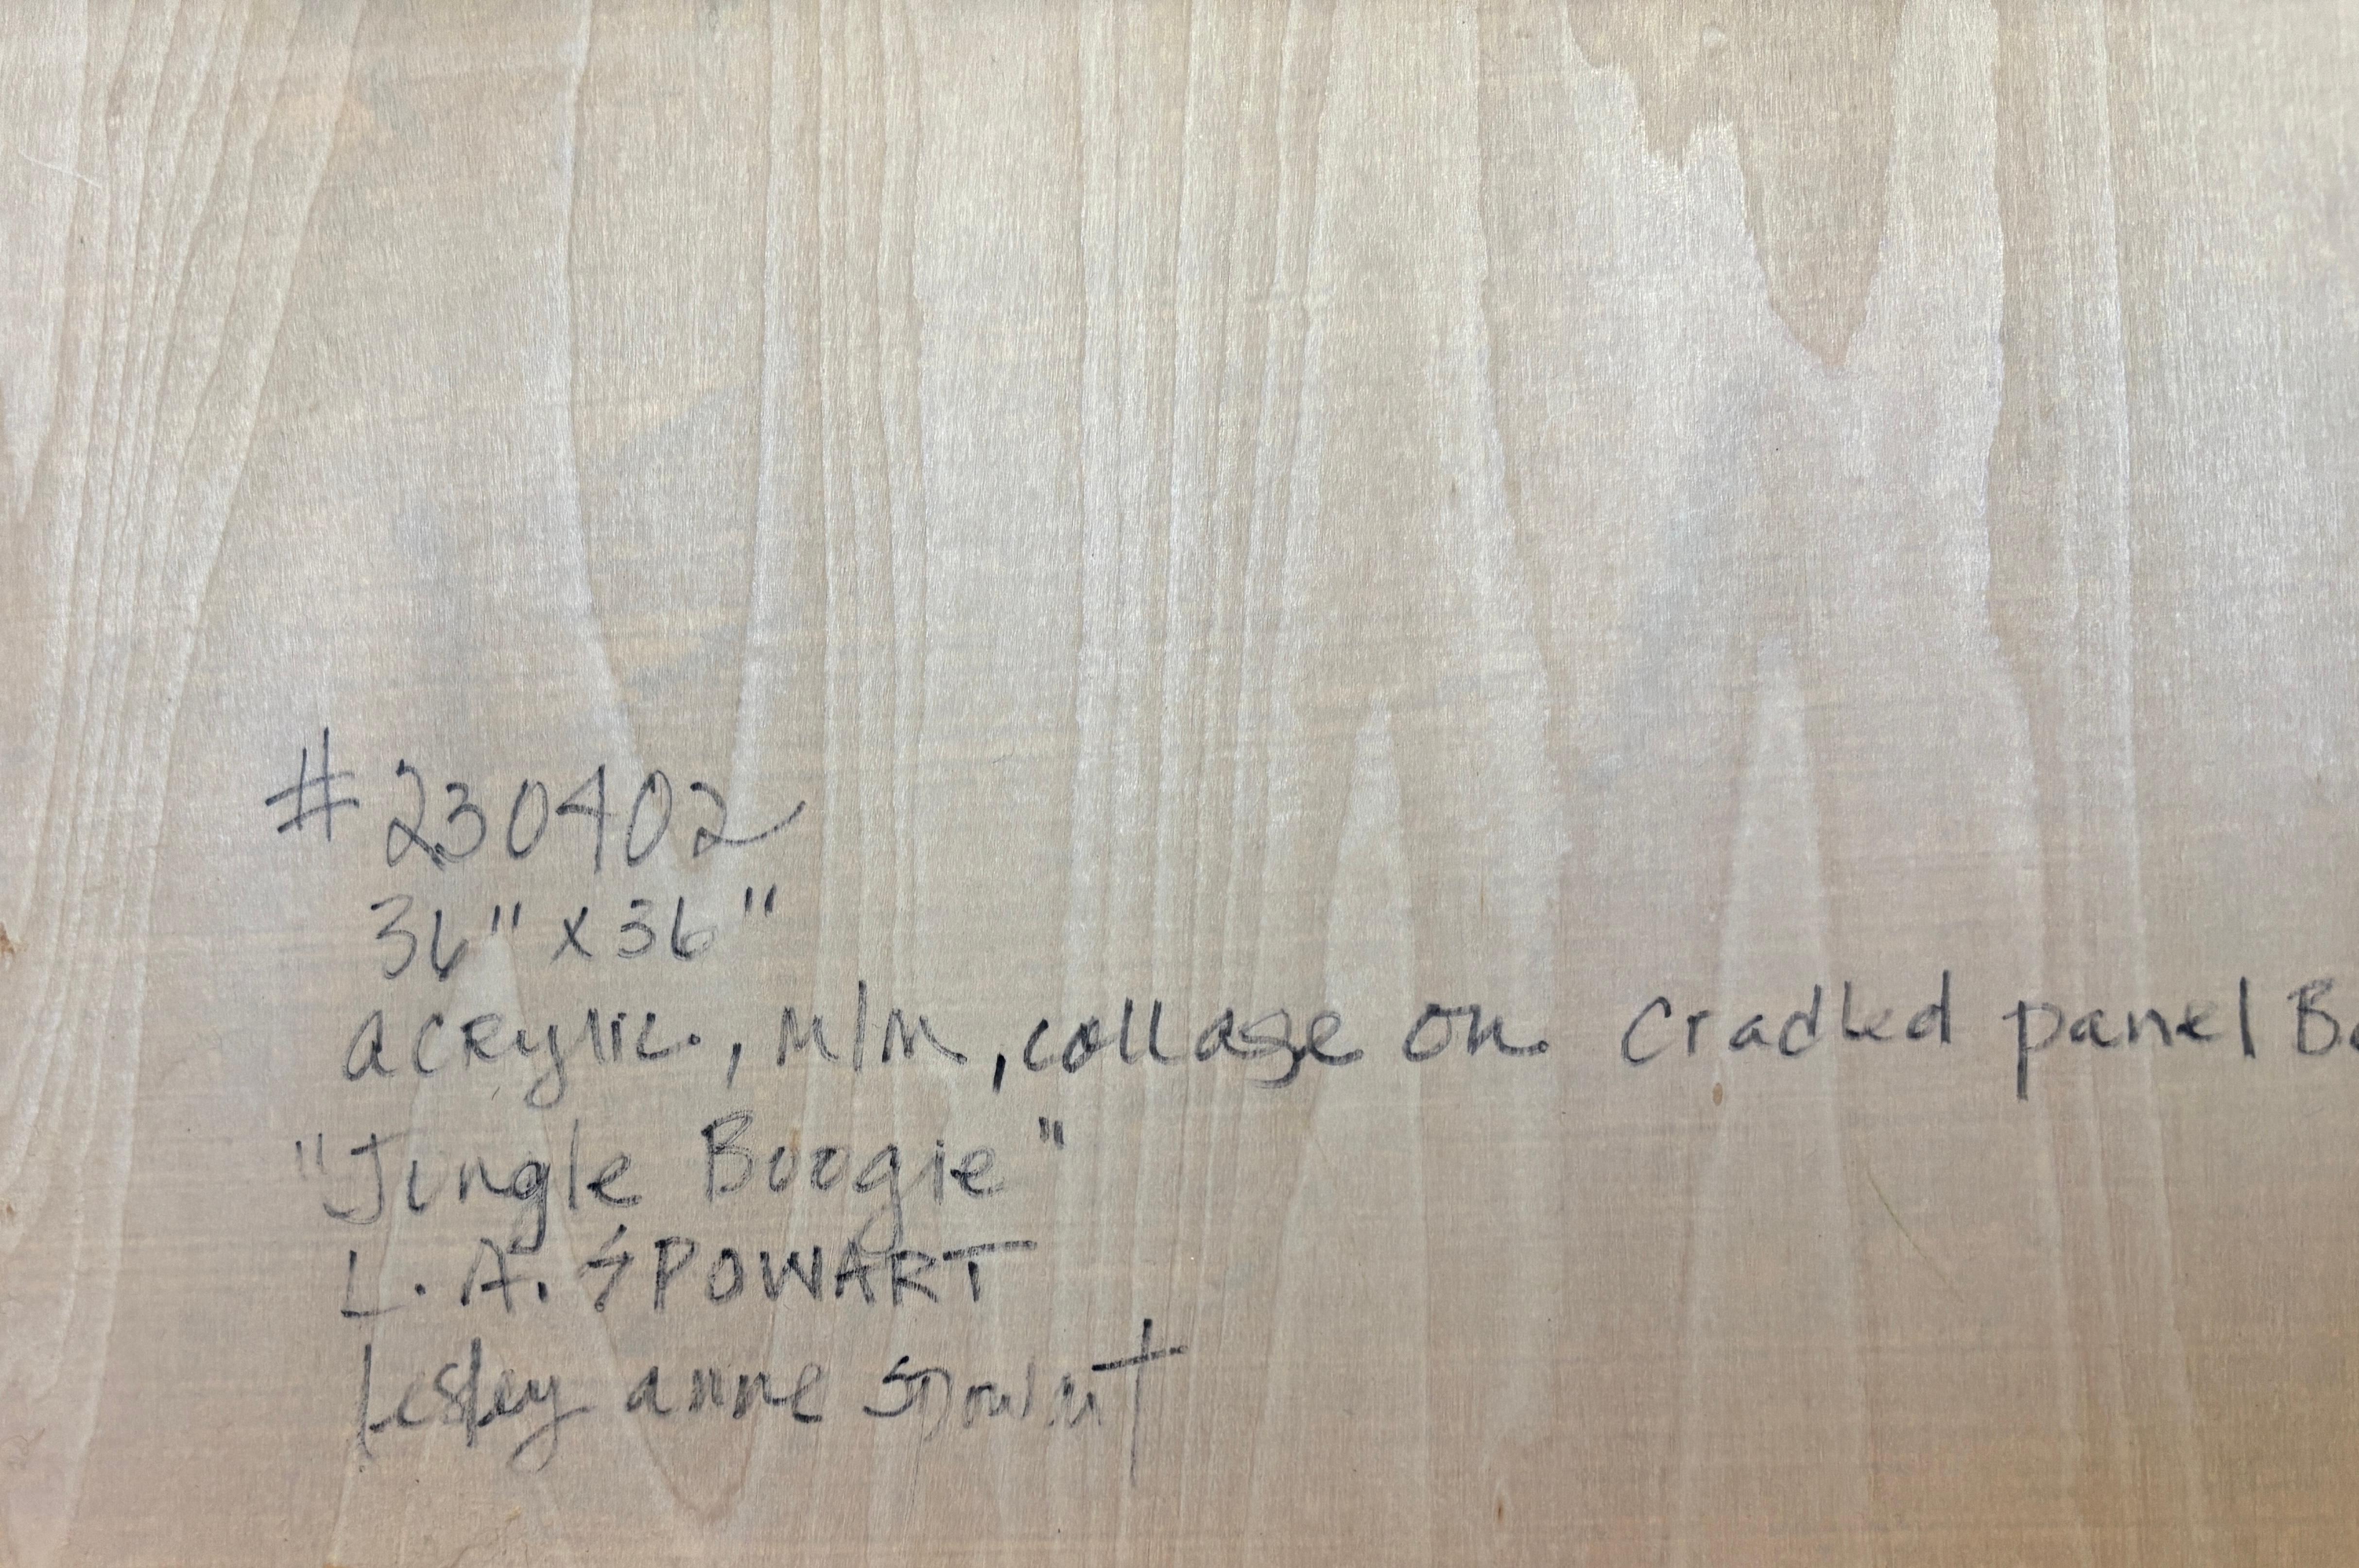 #230402
36" x 36"
acrylic., M/M, collage on. Cradled panel
"Jungle Boogie"
L. A. SPOWART
Lesley anne Spowart